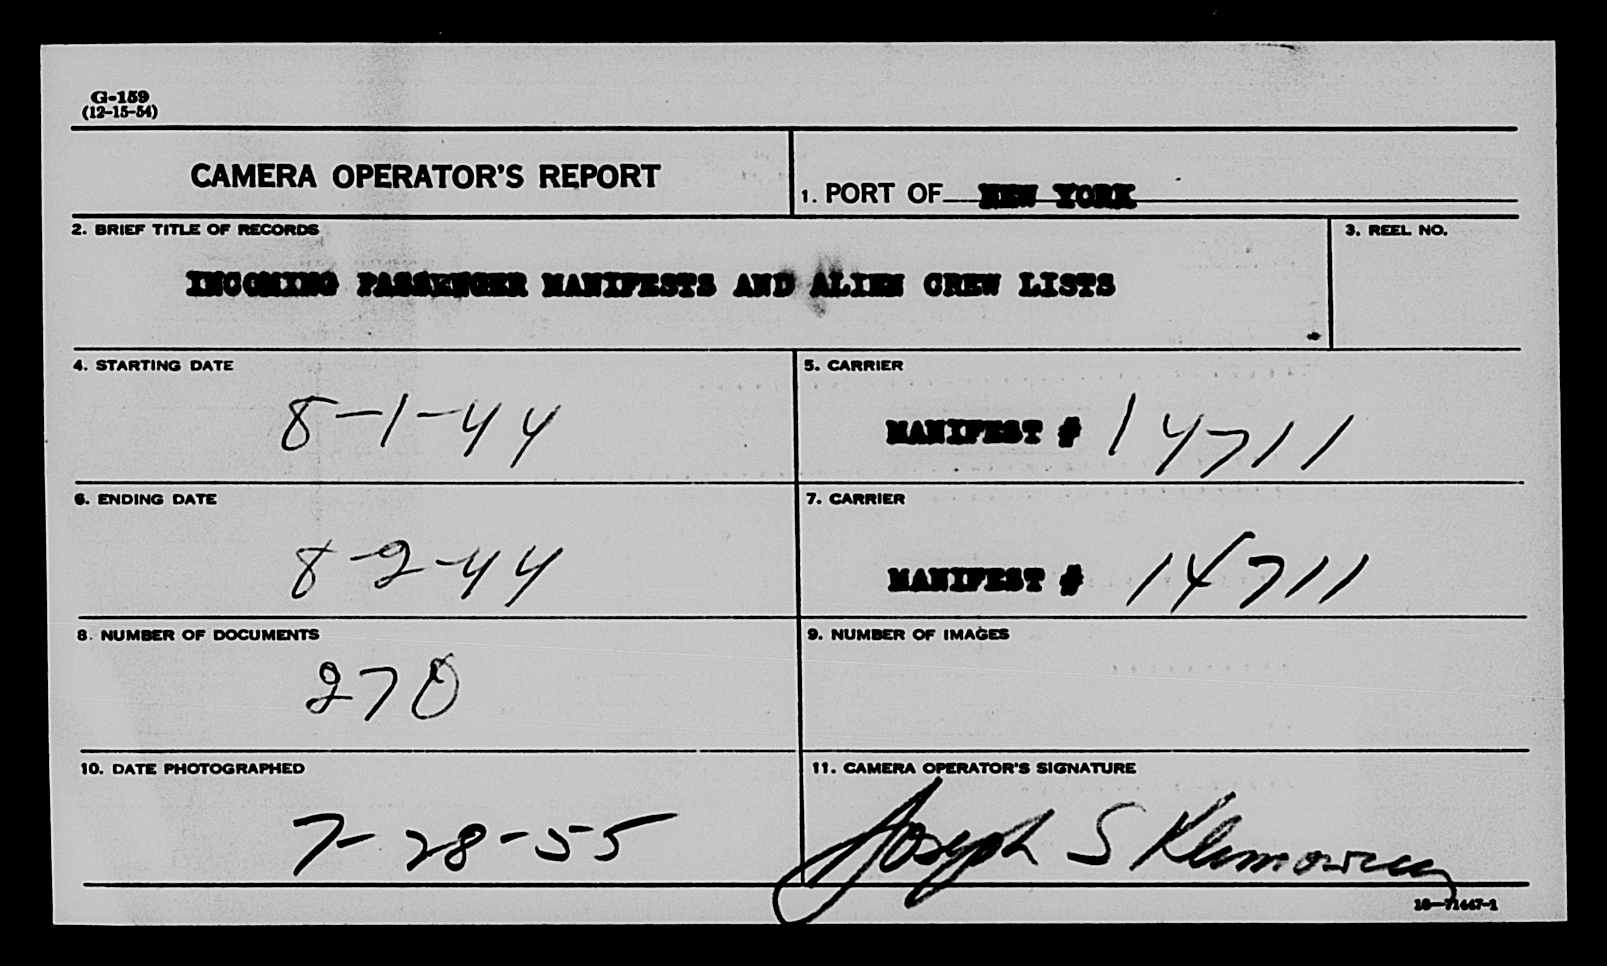 G-159
(12-15-54)
CAMERA OPERATOR'S REPORT
1. PORT OF NEW YORK
2. BRIEF TITLE OF RECORDS
3. REEL NO.
INCOMING PASSENGER MANIFESTS AND ALIEN CREW LISTS
4. STARTING DATE
5. CARRIER
8-1-44
MANIFEST # 14711
6. ENDING DATE
7. CARRIER
8-2-44
MANIFEST # 14711
8. NUMBER OF DOCUMENTS
9. NUMBER OF IMAGES
270
10. DATE PHOTOGRAPHED
11. CAMERA OPERATOR'S SIGNATURE
7-28-55
Joseph S
16-71447-1